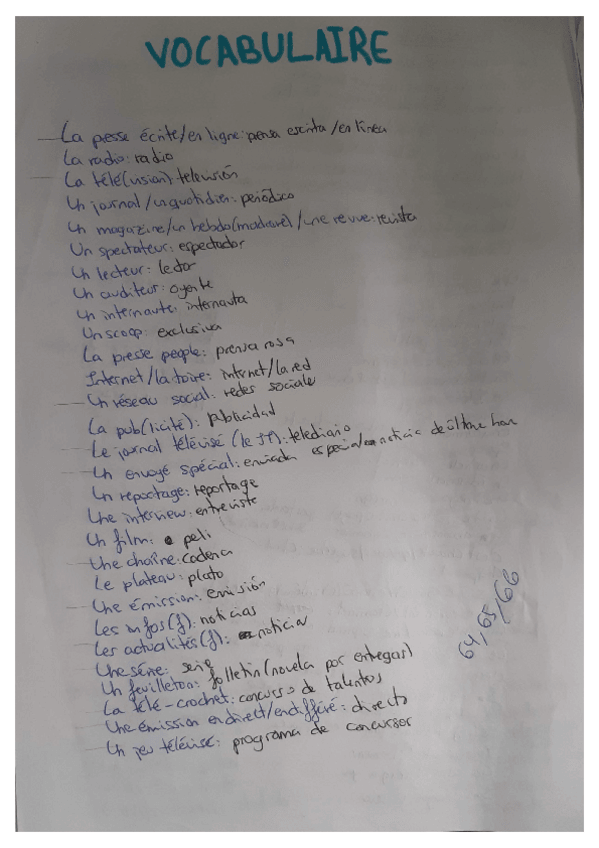 VOCABULAIRE
La presse écrite/en ligne: prensa escrita/en línea
La radio: radio
La télé(vision): televisión
Un journal/un quotidien: periódico
Un magazine/un hebdo(madaire)/une revue: revista
Un spectateur: espectador
Un lecteur: lector
Un auditeur: oyente
Un internaute: internauta
Un scoop: exclusiva
La presse people: prensa rosa
Internet/la toire: internet/la red
Un réseau social: redes sociale
La pub(licité): publicidad
Le journal télévisé (le JT): telediario
Un envoyé spécial: enviada especial noticia de última hora
Un reportage: reportage
Une interview: entreviste
Un film: peli
Une chaîne: cadena
Le plateau: plato
Une émission: emisión
Les infos (f): noticias
Les actualités (f): noticia
Une série: serie
Un feuilleton: folletin (novela por entregas)
La télé-crochet: concurso de talentos
Une émission en direct/en différé: directo
Un jeu télévisé: programa de concursor
64/65/66